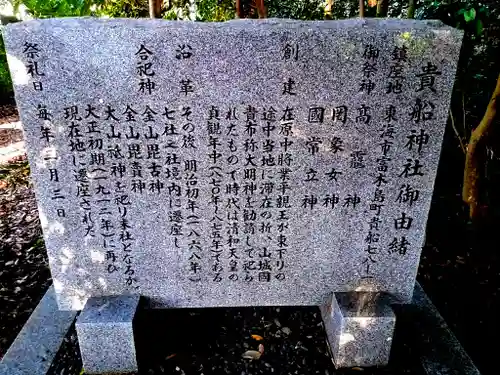 貴船神社御由緒
鎮座地 東海市富木島町貴船七八ー一
御祭神 高龗神
罔象女神
國常立神
創建 在原中将業平親王が東下りの
途中当地に滞在の折、山城国
貴布祢大明神を勧請して祀ら
れたもので時代は清和天皇の
貞観年中(八七〇年、八七五年)である
沿革 その後、明治初年(一八六八年)
七社之社境内に遷座し
大正初期(一九一二年)に再び
現在地に遷座された
合祀神 金山毘古神
金山毘賣神
大山祗神を祀り末社となるか
祭礼日 毎年二月三日